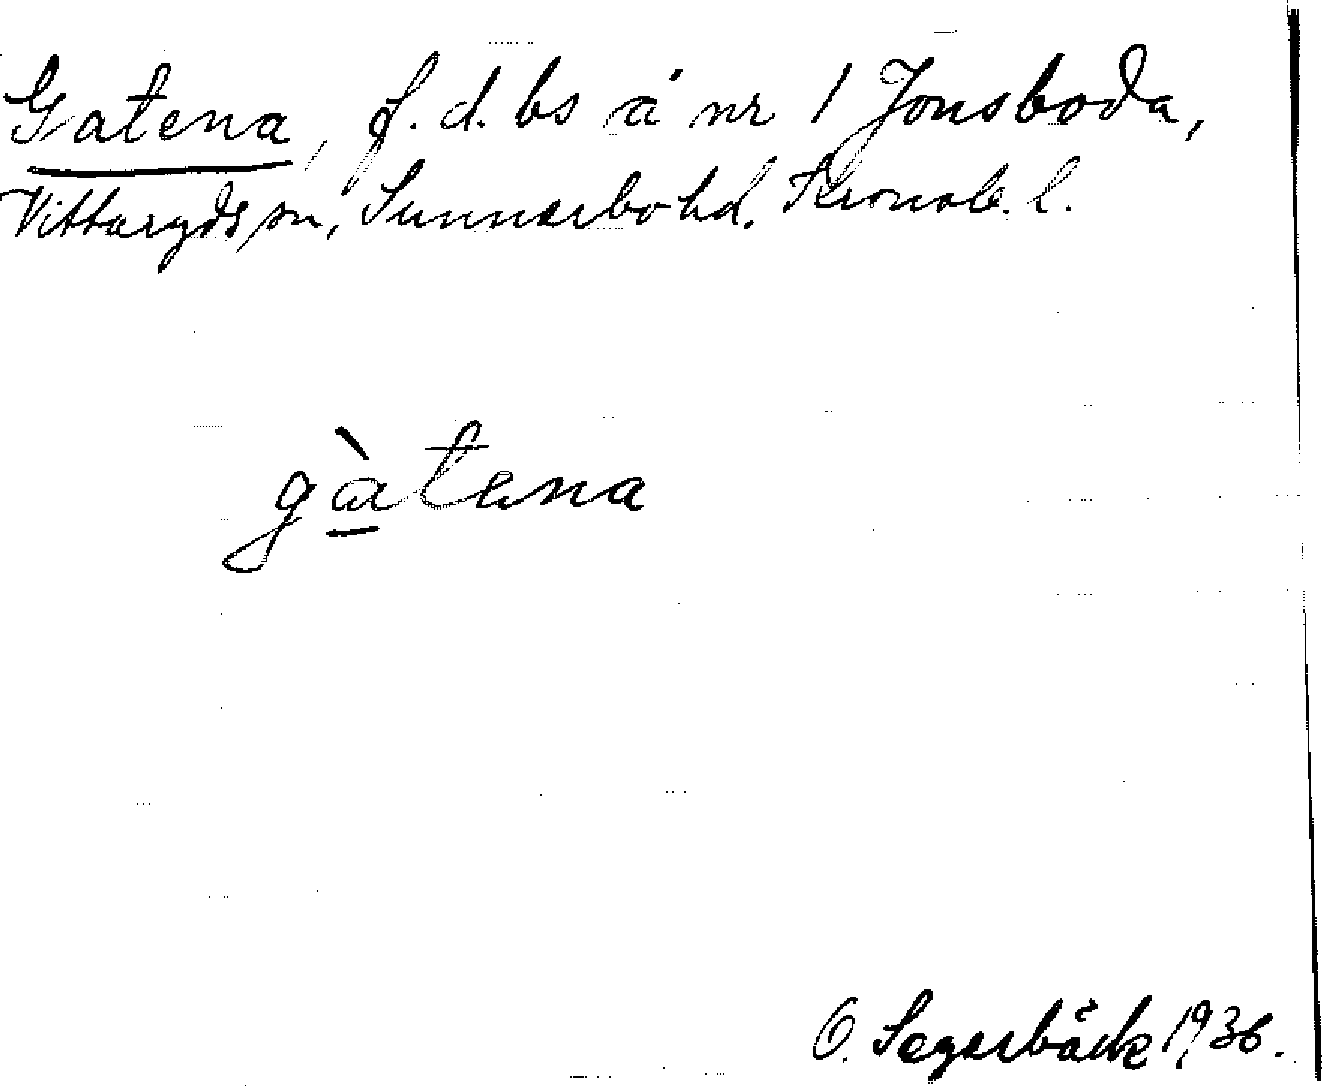 Gatena, f. d. bs å nr 1 Jonsboda,
Vittaryds sn, Sunnerbo hd. Kronob. l.
gàtena
O. Segerbäck 1936.